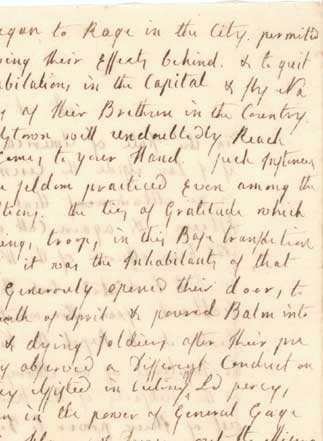 egun to Rage in the City. permited
ving their Effects behind. & to quit
bitations, in the Capital & fly Na
of their Brethren in the Country.
town will undoubtedly Reach
Comes to your Hand. such Instances
seldom practiced Even among the
tions. the ties of Gratitude which
ing, troops, in this Base transaction
it was the Inhabitants of that
Generously opened their doors, to
nth of April & poured Balm into
& dying Soldiers after their pre
y observed a Different Conduct on
ey assisted in Ld percy,
in the power of General Gage